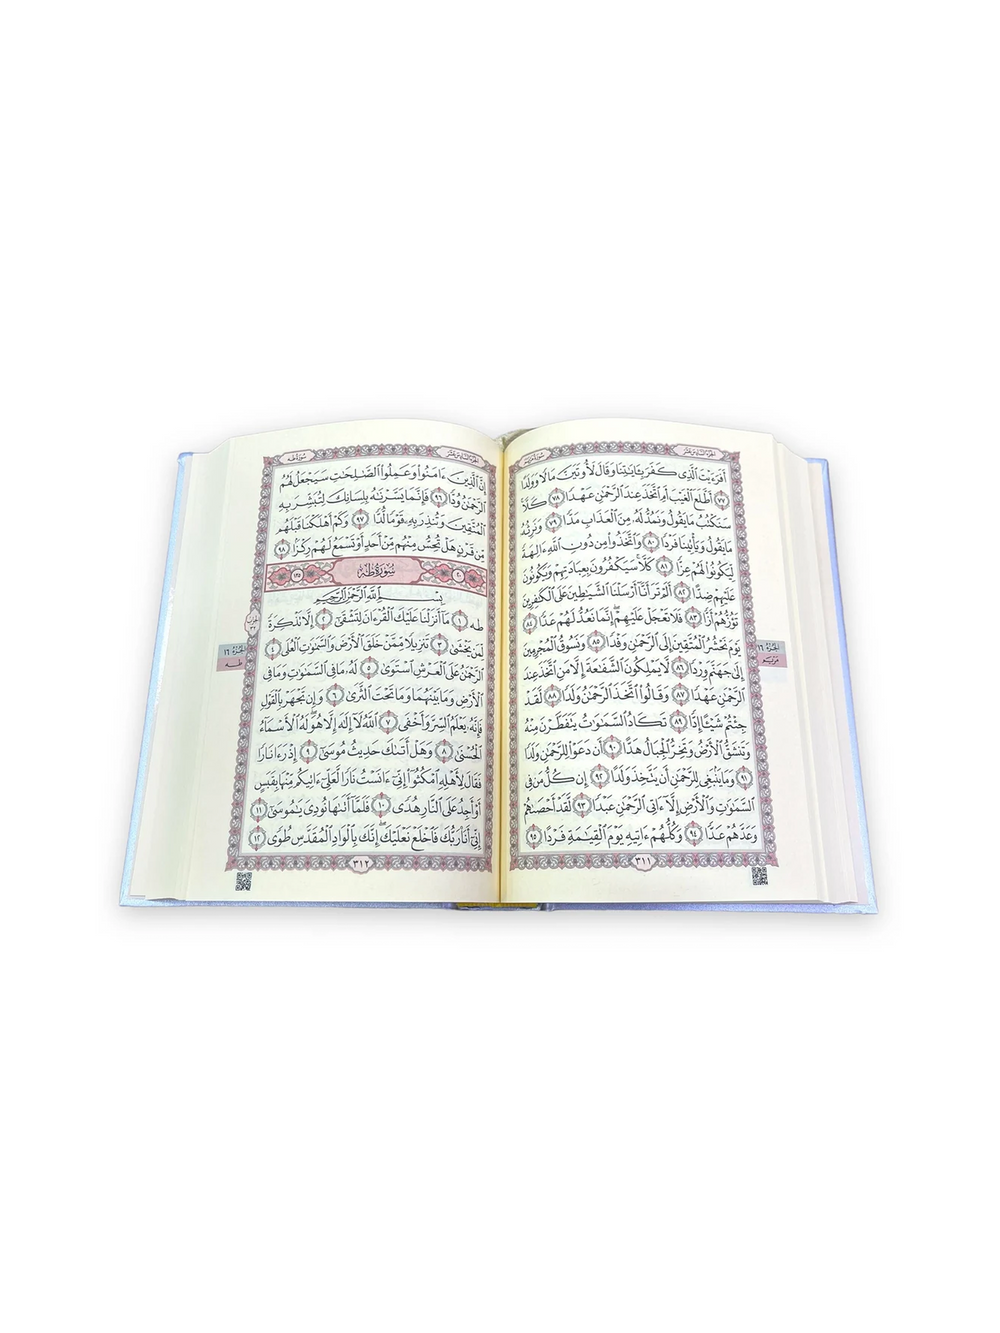 الجزء السادس عشر
سورة مريم
أَفَرَءَيْتَ ٱلَّذِى كَفَرَ بِـَٔايَـٰتِنَا وَقَالَ لَأُوتَيَنَّ مَالًا وَوَلَدًا
٧٧ أَطَّلَعَ ٱلْغَيْبَ أَمِ ٱتَّخَذَ عِندَ ٱلرَّحْمَـٰنِ عَهْدًا ٧٨ كَلَّا
سَنَكْتُبُ مَا يَقُولُ وَنَمُدُّ لَهُۥ مِنَ ٱلْعَذَابِ مَدًّا ٧٩ وَنَرِثُهُۥ
مَا يَقُولُ وَيَأْتِينَا فَرْدًا ٨٠ وَٱتَّخَذُوا۟ مِن دُونِ ٱللَّهِ ءَالِهَةً
لِّيَكُونُوا۟ لَهُمْ عِزًّا ٨١ كَلَّا سَيَكْفُرُونَ بِعِبَادَتِهِمْ وَيَكُونُونَ
عَلَيْهِمْ ضِدًّا ٨٢ أَلَمْ تَرَ أَنَّآ أَرْسَلْنَا ٱلشَّيَـٰطِينَ عَلَى ٱلْكَـٰفِرِينَ
تَؤُزُّهُمْ أَزًّا ٨٣ فَلَا تَعْجَلْ عَلَيْهِمْ إِنَّمَا نَعُدُّ لَهُمْ عَدًّا ٨٤
يَوْمَ نَحْشُرُ ٱلْمُتَّقِينَ إِلَى ٱلرَّحْمَـٰنِ وَفْدًا ٨٥ وَنَسُوقُ ٱلْمُجْرِمِينَ
إِلَىٰ جَهَنَّمَ وِرْدًا ٨٦ لَّا يَمْلِكُونَ ٱلشَّفَـٰعَةَ إِلَّا مَنِ ٱتَّخَذَ عِندَ
ٱلرَّحْمَـٰنِ عَهْدًا ٨٧ وَقَالُوا۟ ٱتَّخَذَ ٱلرَّحْمَـٰنُ وَلَدًا ٨٨ لَّقَدْ
جِئْتُمْ شَيْـًٔا إِدًّا ٨٩ تَكَادُ ٱلسَّمَـٰوَٰتُ يَتَفَطَّرْنَ مِنْهُ
وَتَنشَقُّ ٱلْأَرْضُ وَتَخِرُّ ٱلْجِبَالُ هَدًّا ٩٠ أَن دَعَوْا۟ لِلرَّحْمَـٰنِ وَلَدًا
٩١ وَمَا يَنۢبَغِى لِلرَّحْمَـٰنِ أَن يَتَّخِذَ وَلَدًا ٩٢ إِن كُلُّ مَن فِى
ٱلسَّمَـٰوَٰتِ وَٱلْأَرْضِ إِلَّآ ءَاتِى ٱلرَّحْمَـٰنِ عَبْدًا ٩٣ لَّقَدْ أَحْصَىٰهُمْ
وَعَدَّهُمْ عَدًّا ٩٤ وَكُلُّهُمْ ءَاتِيهِ يَوْمَ ٱلْقِيَـٰمَةِ فَرْدًا ٩٥
٣١١
الجزء ١٦
مريم
الجزء السادس عشر
سورة طه
إِنَّ ٱلَّذِينَ ءَامَنُوا۟ وَعَمِلُوا۟ ٱلصَّـٰلِحَـٰتِ سَيَجْعَلُ لَهُمُ
ٱلرَّحْمَـٰنُ وُدًّا ٩٦ فَإِنَّمَا يَسَّرْنَـٰهُ بِلِسَانِكَ لِتُبَشِّرَ بِهِ
ٱلْمُتَّقِينَ وَتُنذِرَ بِهِۦ قَوْمًا لُّدًّا ٩٧ وَكَمْ أَهْلَكْنَا قَبْلَهُم
مِّن قَرْنٍ هَلْ تُحِسُّ مِنْهُم مِّنْ أَحَدٍ أَوْ تَسْمَعُ لَهُمْ رِكْزًۢا ٩٨
٢٠ سورة طه ١٣٥
بِسْمِ ٱللَّهِ ٱلرَّحْمَـٰنِ ٱلرَّحِيمِ
طه ١ مَآ أَنزَلْنَا عَلَيْكَ ٱلْقُرْءَانَ لِتَشْقَىٰٓ ٢ إِلَّا تَذْكِرَةً
لِّمَن يَخْشَىٰ ٣ تَنزِيلًا مِّمَّنْ خَلَقَ ٱلْأَرْضَ وَٱلسَّمَـٰوَٰتِ ٱلْعُلَى ٤
ٱلرَّحْمَـٰنُ عَلَى ٱلْعَرْشِ ٱسْتَوَىٰ ٥ لَهُۥ مَا فِى ٱلسَّمَـٰوَٰتِ وَمَا فِى
ٱلْأَرْضِ وَمَا بَيْنَهُمَا وَمَا تَحْتَ ٱلثَّرَىٰ ٦ وَإِن تَجْهَرْ بِٱلْقَوْلِ
فَإِنَّهُۥ يَعْلَمُ ٱلسِّرَّ وَأَخْفَى ٧ ٱللَّهُ لَآ إِلَـٰهَ إِلَّا هُوَ لَهُ ٱلْأَسْمَآءُ
ٱلْحُسْنَىٰ ٨ وَهَلْ أَتَىٰكَ حَدِيثُ مُوسَىٰٓ ٩ إِذْ رَءَا نَارًا
فَقَالَ لِأَهْلِهِ ٱمْكُثُوٓا۟ إِنِّىٓ ءَانَسْتُ نَارًا لَّعَلِّىٓ ءَاتِيكُم مِّنْهَا بِقَبَسٍ
أَوْ أَجِدُ عَلَى ٱلنَّارِ هُدًى ١٠ فَلَمَّآ أَتَىٰهَا نُودِىَ يَـٰمُوسَىٰٓ ١١
إِنِّىٓ أَنَا۠ رَبُّكَ فَٱخْلَعْ نَعْلَيْكَ إِنَّكَ بِٱلْوَادِ ٱلْمُقَدَّسِ طُوًى ١٢
٣١٢
الجزء ١٦
طه